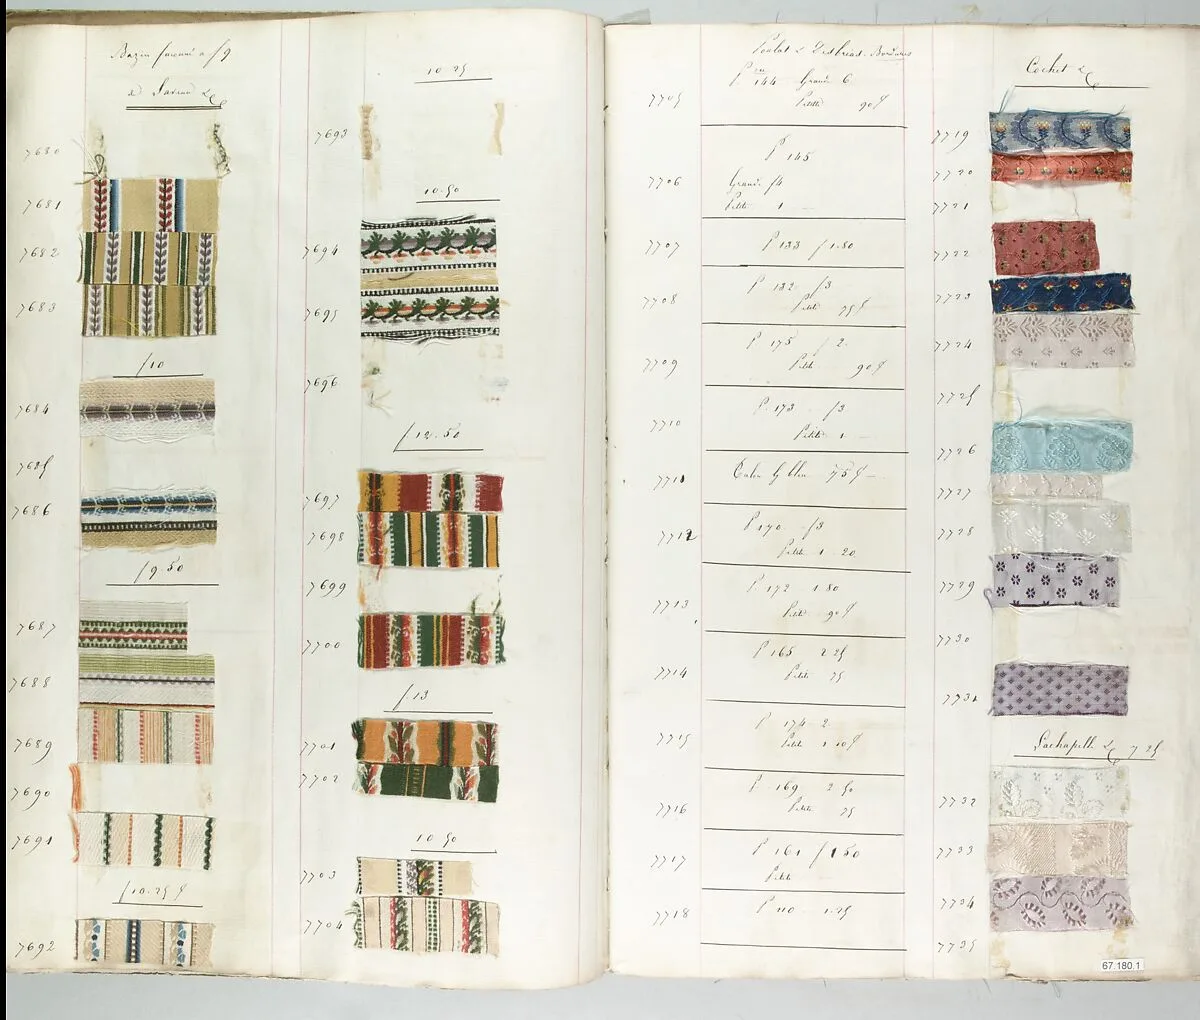 Bazin façonné a f 9
7680
7681
7682
7683
f 10
7684
7685
7686
f 9.50
7687
7688
7689
7690
7691
f 10.25
7692
10 25
7693
10.50
7694
7695
7696
f 12.50
7697
7698
7699
7700
f 13
7701
7702
10 50
7703
7704
Bordures
P 144 Grand 6
7705
Petite 90
P 145
7706
Grand f 4
Petite 1 -
7707
P 133 f 1.80
P 132 f 3
7708
Petite 75
P 175 f 2.
7709
Petite 90
P 173 f 3
7710
Petite 1 -
7711
75
P 170 f 3
7712
Petite 1.20
P 172 1.80
7713
Petite 90
P 165 2 25
7714
Petite 75
P 174 2.
7715
Petite 1.10
P 169 2 50
7716
Petite 75
P 161 f 1 50
7717
Petite
7718
P 110 1.25
Cochet &c
7719
7720
7721
7722
7723
7724
7725
7726
7727
7728
7729
7730
7731
Lachapelle &c 7 25
7732
7733
7734
7735
67.180.1